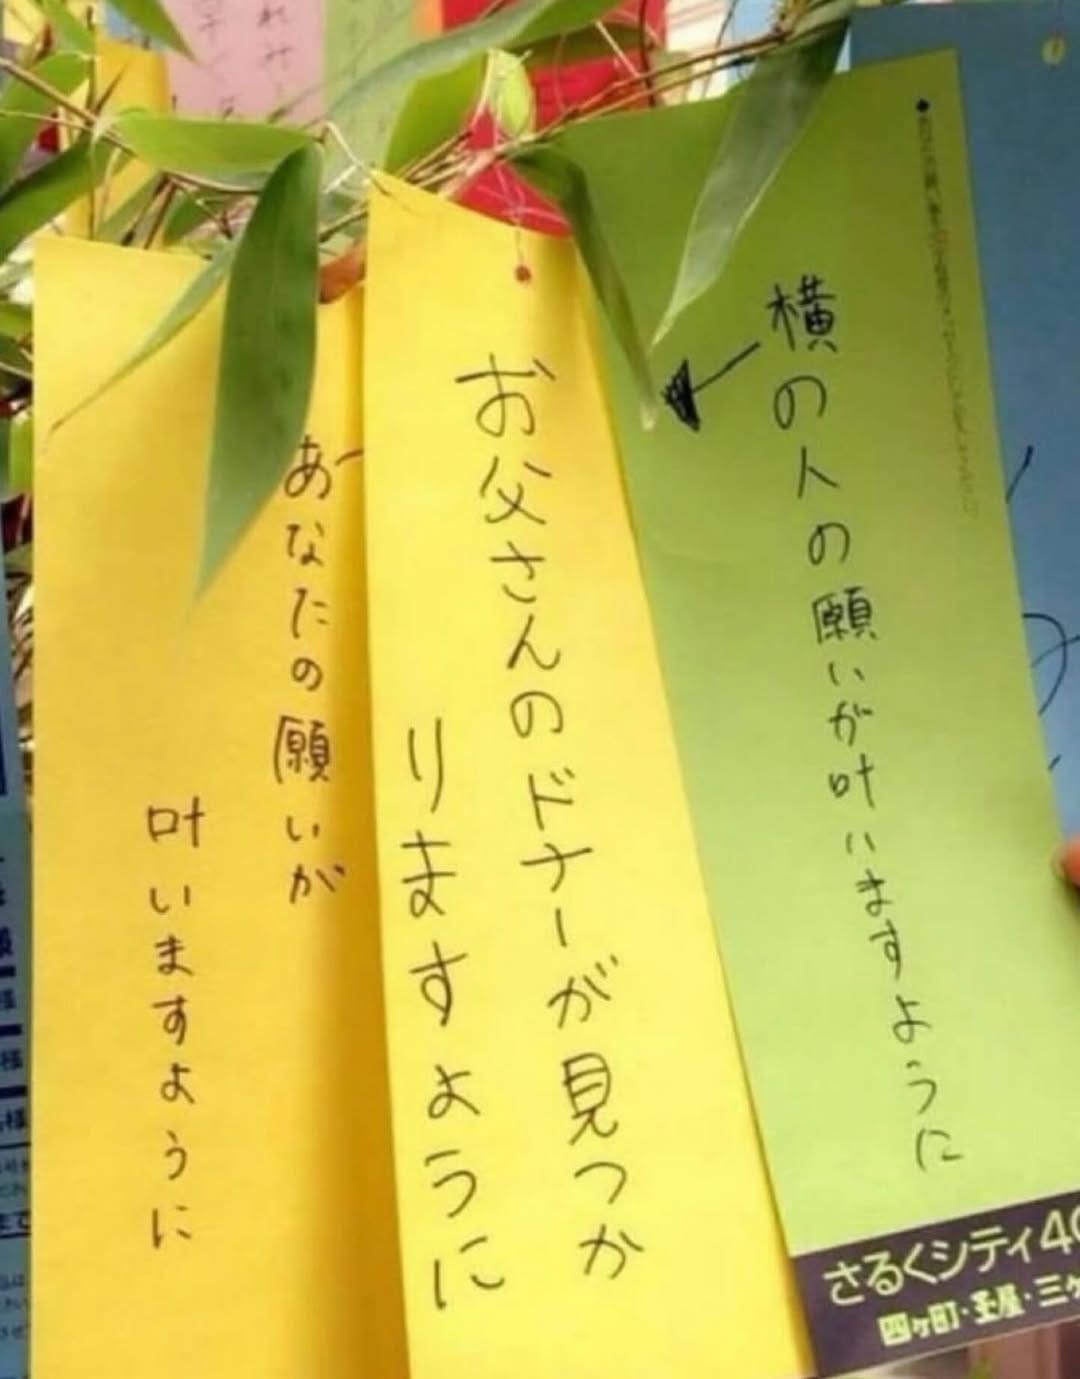 横の人の願いが叶いますように
さるくシティ40
四ヶ町・玉屋・三ヶ
お父さんのドナーが見つか
りますように
あなたの願いが
叶いますように